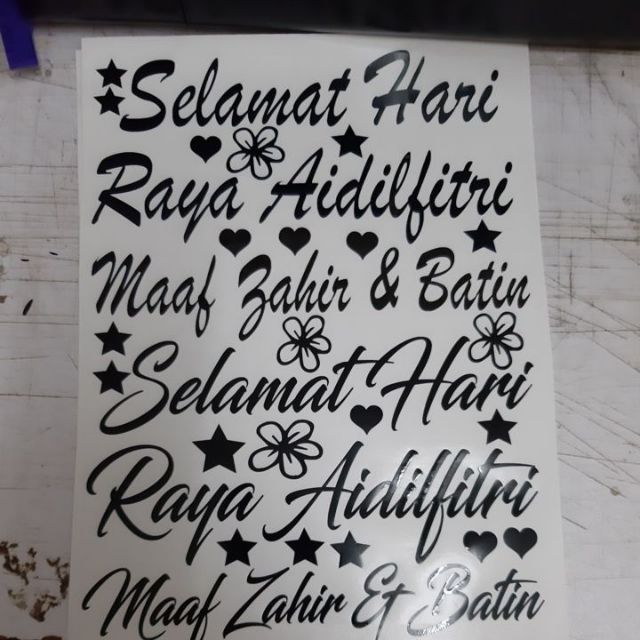 Selamat Hari
Raya Aidilfitri
Maaf Zahir & Batin
Selamat Hari
Raya Aidilfitri
Maaf Zahir & Batin